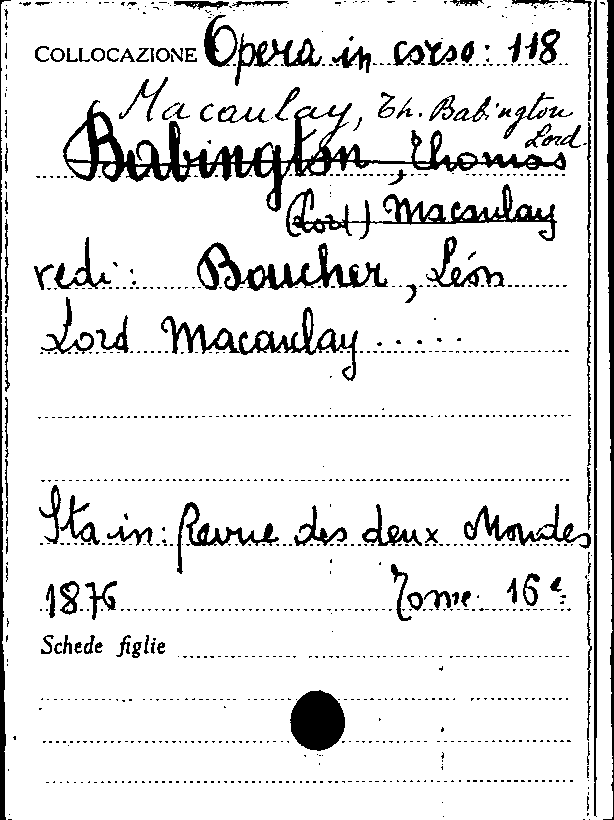 COLLOCAZIONE Opera in corso: 118
Macaulay, Th. Babington
Lord
Babington, Thomas
(Lord) Macaulay
vedi: Boucher, Léon
Lord Macaulay .....
Sta in: Revue des deux Mondes
1876 Tome 16e
Schede figlie